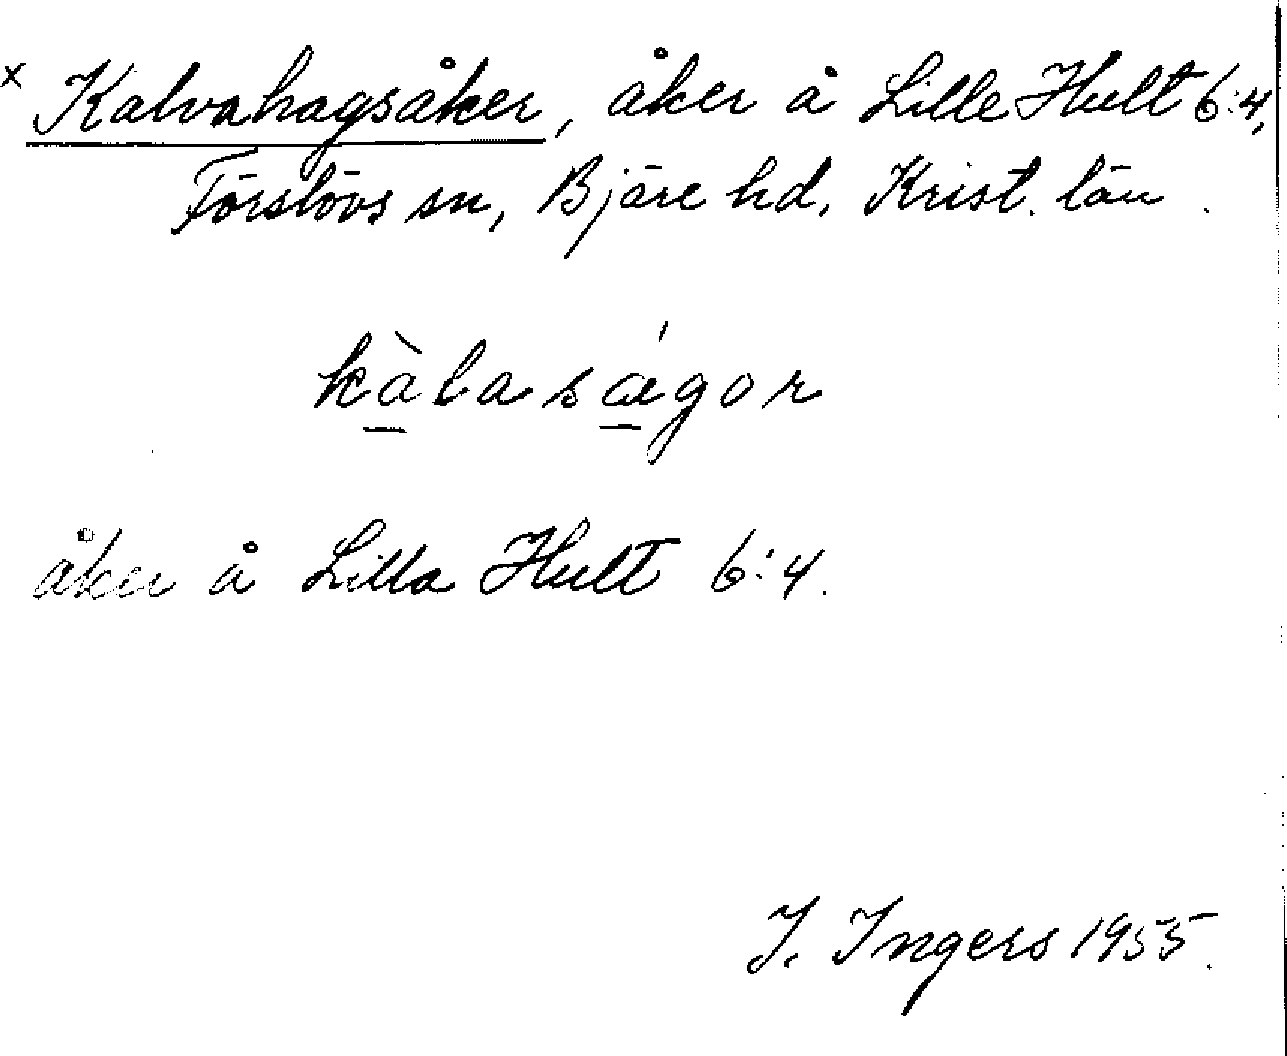 x Kalvahagsåker, åker å Lille Hult 6:4,
Förslövs sn, Bjäre hd, Krist. län.
kàlaságor
åker å Lilla Hult 6:4.
I. Ingers 1955.